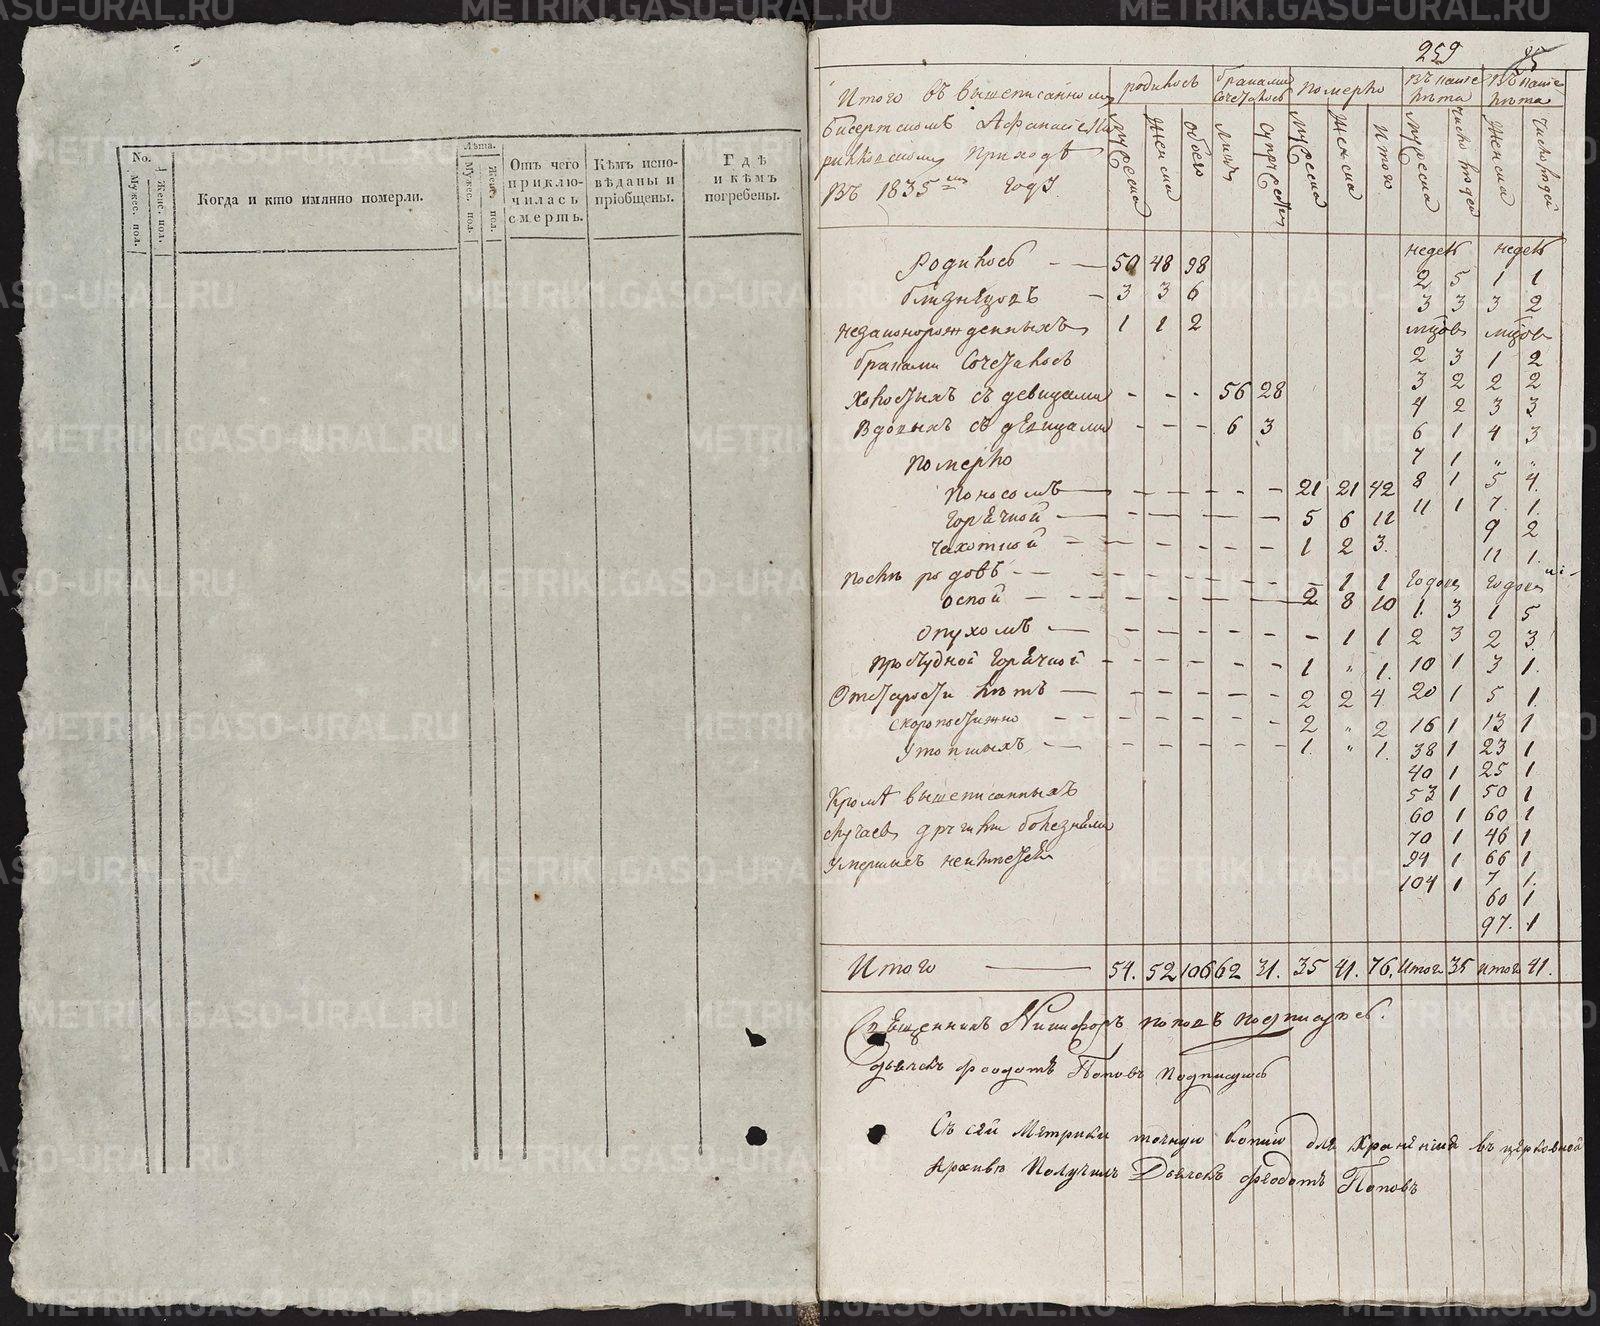 No.
Мужес. пол.
Женс. пол.
Когда и кто имянно померли.
Лѣта.
Мужес. пол.
Женс. пол.
Отъ чего
приклю-
чилась
смерть.
Кѣмъ испо-
вѣданы и
пріобщены.
Гдѣ
и кѣмъ
погребены.
259
Итого въ вышеписанномъ
Бисертскомъ
приходѣ
въ 1835 году
родилось
браками сочеталось
померло
въ какие лѣта
въ какие лѣта
мужеска
женска
обоего
супружествъ
мужеска
женска
итого
мужеска
число людей
женска
число людей
недель недель
Родилось 50 48 98 2 5 1 1
близнецовъ 3 3 6 3 3 3 2
незаконорожденныхъ 1 1 2 мцовъ мцовъ
браками сочеталось 2 3 1 2
3 2 2 2
холостыхъ съ девицами - - - 56 28 4 2 3 3
вдовыхъ съ девицами - - - 6 3 6 1 4 3
Померло 7 1 „ „
поносомъ 21 21 42 8 1 5 4
горячкой 5 6 11 11 1 7 1
9 2
чахоткой 1 2 3 11 1
послѣ родовъ - 1 1 годовъ годовъ
оспой 2 8 10 1 3 1 5
опухомъ - 1 1 2 3 2 3
простудной горячкой 1 „ 1 10 1 3 1
от старости лѣтъ 2 2 4 20 1 5 1
скоропостижно 2 „ 2 16 1 13 1
утопшыхъ 1 „ 1 38 1 23 1
40 1 25 1
Кромѣ вышеписанныхъ 53 1 50 1
60 1 60 1
случаевъ другими болезнями 70 1 46 1
94 1 66 1
умершихъ 104 1 7 1
60 1
97 1
Итого 54. 52 106 62 31. 35 41. 76. итог 35 итог 41.
Священникъ Никифоръ Поповъ подписался.
Дьячекъ Феодотъ Поповъ подписался
Съ сей метрики точную копию для хранения въ церковной
архивѣ получилъ Дьячекъ Феодотъ Поповъ
METRIKI.GASO-URAL.RU